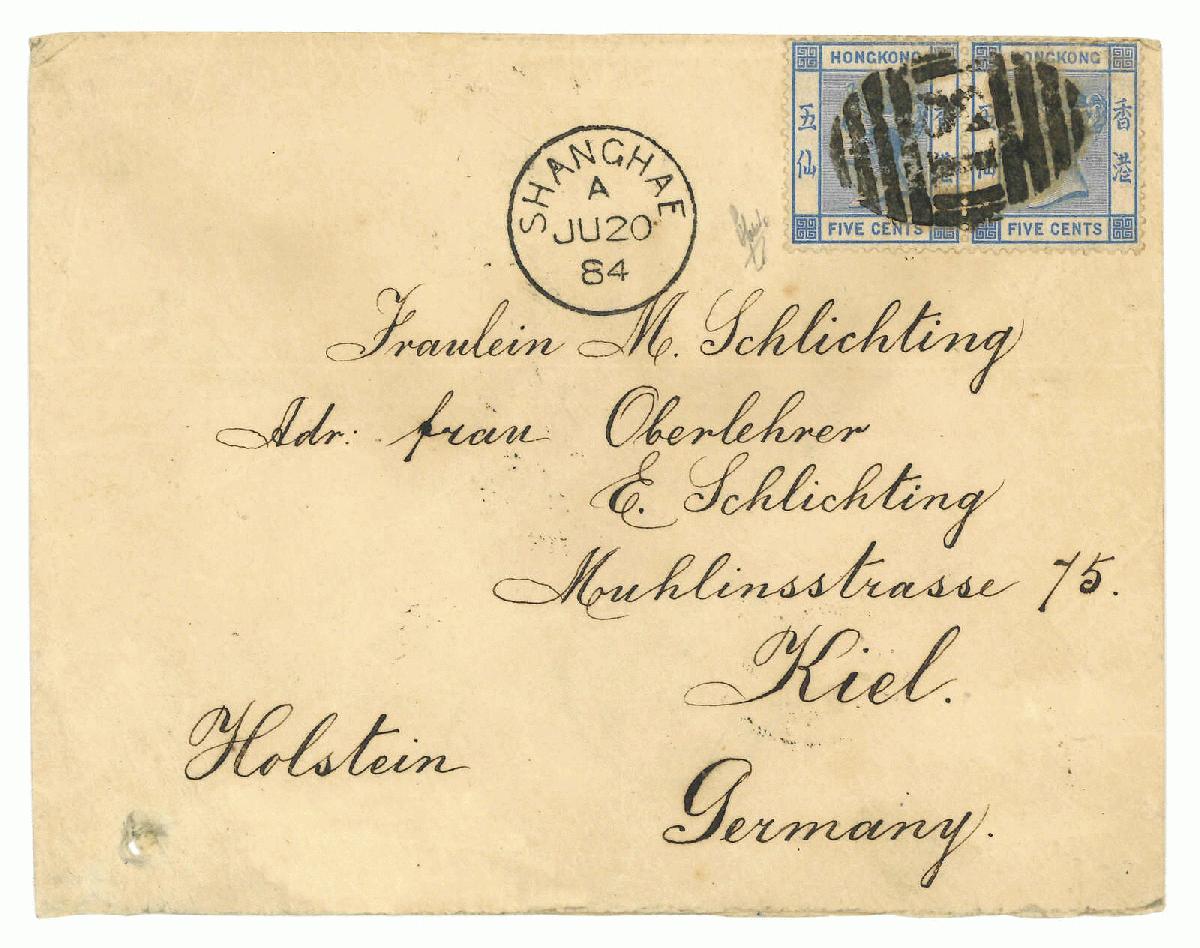 HONGKONG
HONGKONG
五仙
香港
FIVE CENTS
FIVE CENTS
SHANGHAE
A
JU 20
84
Fraulein M. Schlichting
Adr: frau Oberlehrer
E. Schlichting
Muhlinsstrasse 75.
Kiel.
Holstein
Germany.